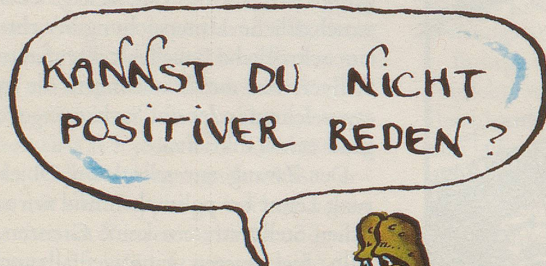 KANNST DU NICHT
POSITIVER REDEN?